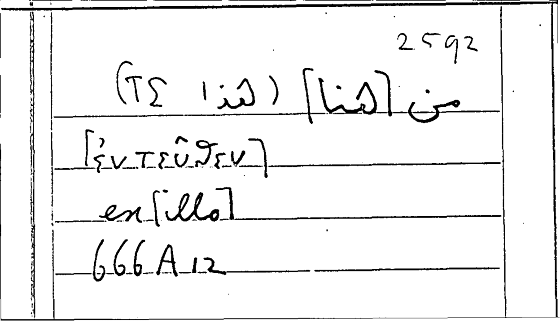 2592
من [هنا] (هذا ΤΣ)
[ἐντεῦθεν]
ex [illo]
666 A 12